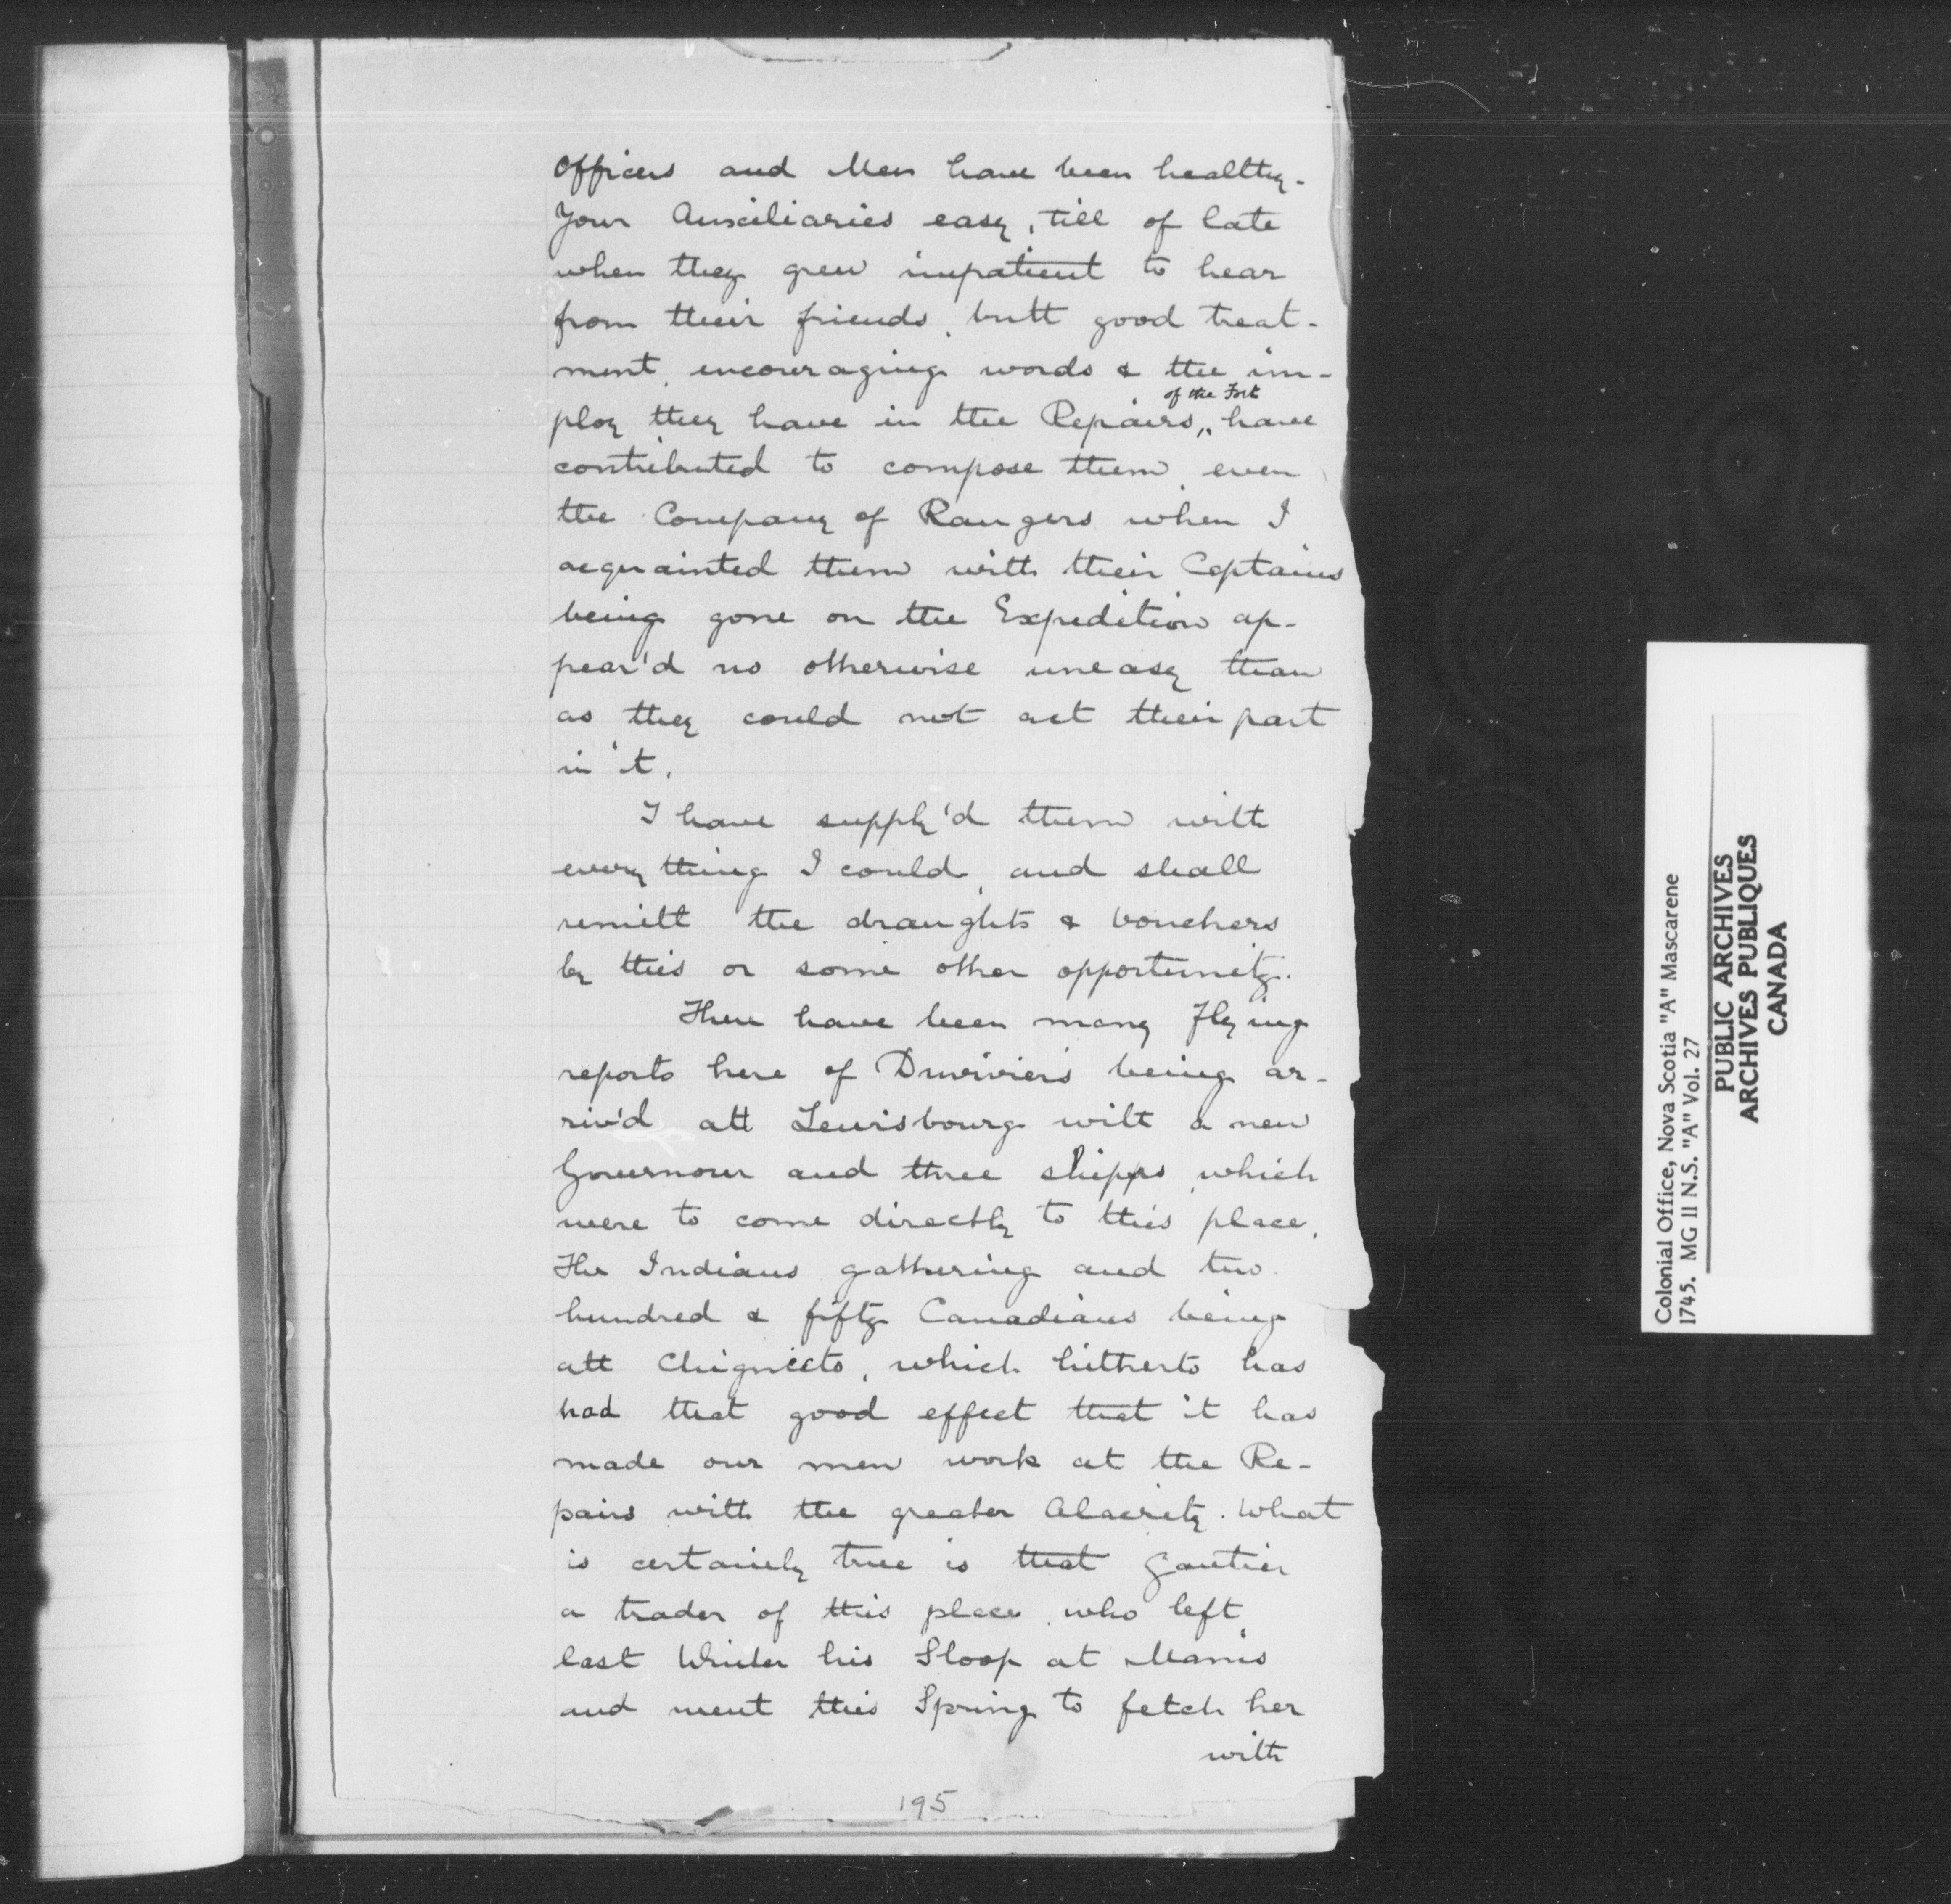 Officers and Men have been healthy.
Your Auxiliaries easy, till of late
when they grew impatient to hear
from their friends, butt good treat-
ment, encouraging words & the im-
of the Fort
ploy they have in the Repairs,, have
contributed to compose them, even
the Company of Rangers when I
acquainted them with their Captains
being gone on the Expedition ap-
pear'd no otherwise uneasy than
as they could not act their part
in 't.
I have supply'd them with
every thing I could, and shall
remitt the draughts & vouchers
by this or some other opportunity.
There have been many Flying
reports here of Duvivier's being ar-
riv'd att Lewisbourg with a new
Governour and three shipps, which
were to come directly to this place,
The Indians gathering and two
hundred & fifty Canadians being
att Chignecto, which hitherto has
had that good effect that it has
made our men work at the Re-
pairs with the greater Alacrity. What
is certainly true is that Gautier
a trader of this place, who left
last Winter his Sloop at Manis
and went this Spring to fetch her
with
195
Colonial Office, Nova Scotia "A" Mascarene
1745. MG 11 N.S. "A" Vol. 27
PUBLIC ARCHIVES
ARCHIVES PUBLIQUES
CANADA